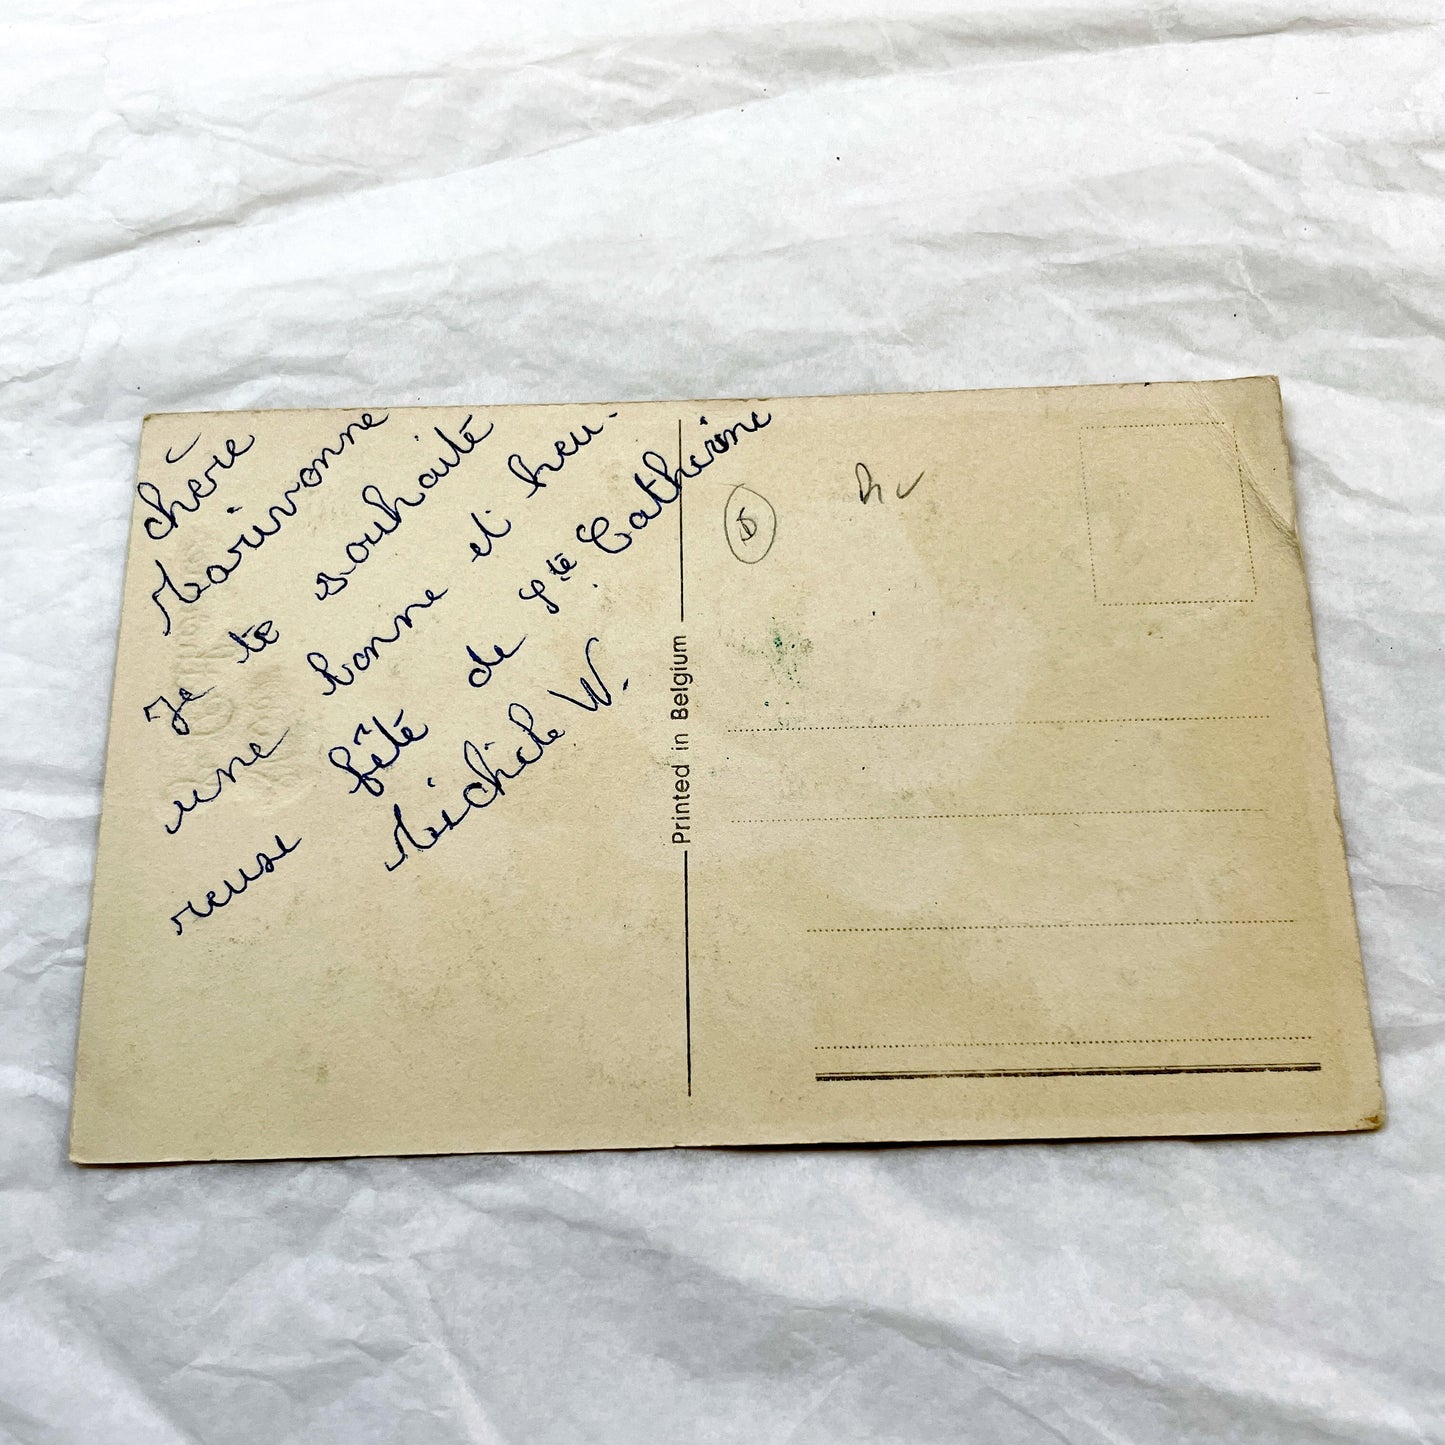 chère
Marivonne
Je te souhaite
une bonne et heu-
reuse fête de Ste Catherine
Michèle W.
Printed in Belgium